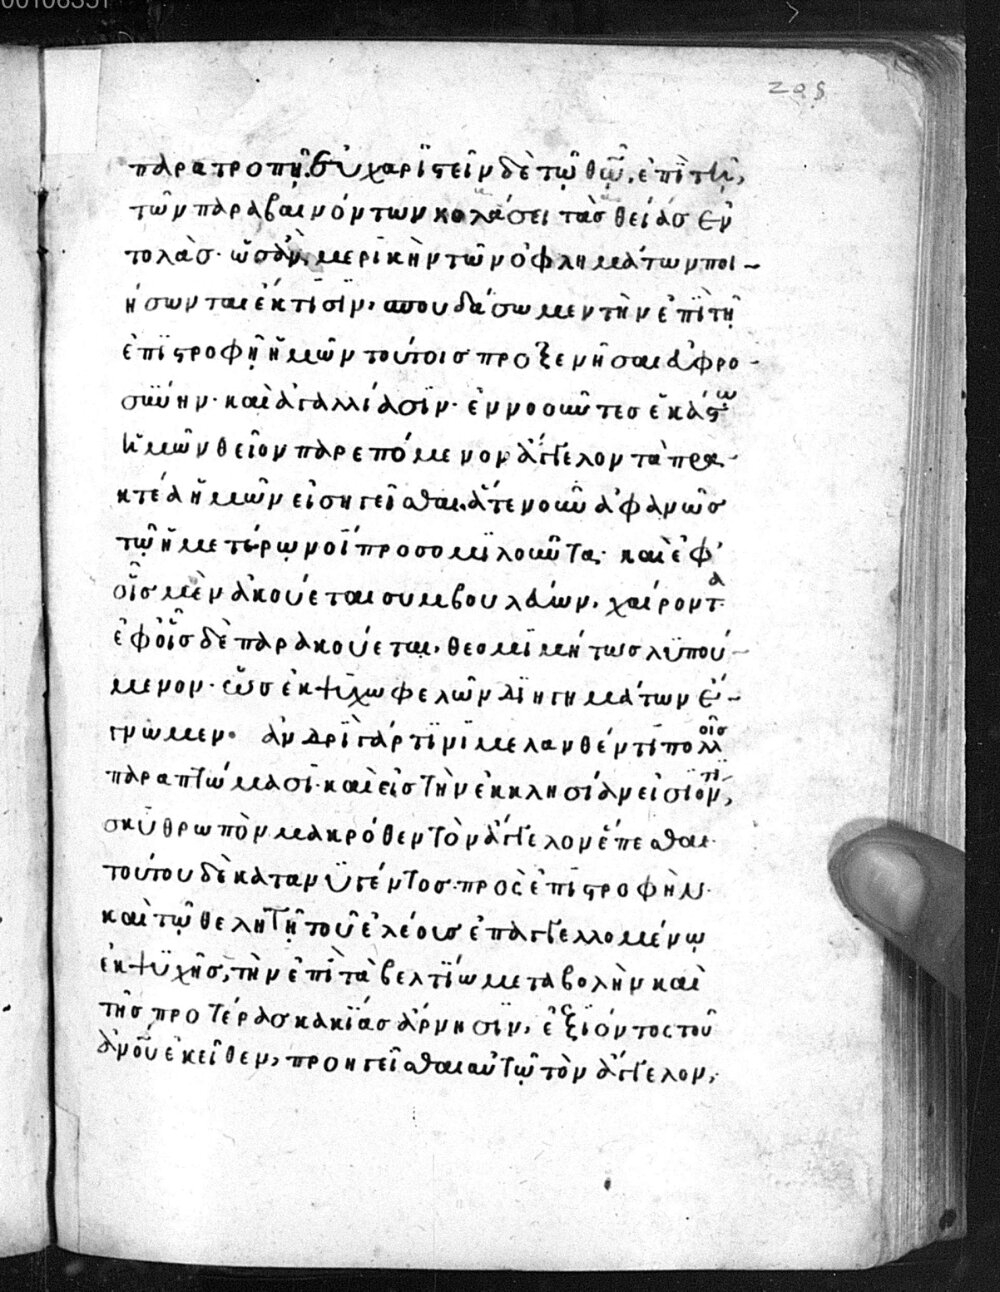 205
παρατροπῆ. Εὐχαριστεῖν δὲ τῷ θῷ, ἐπὶ τῆ,
τῶν παραβαινόντων κολάσει τὰσ θείασ ἐν
τολὰσ· ὡσὰν, μερικὴν τῶν ὀφλημάτων ποι-
ήσωνται ἐκτισϊν, σπουδάσωμεν τὴν ἐπϊ τῆ
ἐπϊστροφῆ ἡμῶν τούτοισ προξενῆσαι ἀφρο-
σύνην· καὶ ἀγαλλιάσϊν· ἐννοοῦντεσ ἑκάστω
ἡμῶν θεῖον παρεπόμενον ἄγγελον τὰ πρα-
κτέα ἡμῶν εἰσηγεῖσθαι, ἅτε νοῦν ἀφανῶσ
τῷ ἡμετέρῳ νοῒ προσομϊλοῦντα· καὶ ἐφ'
οἷσ μὲν ἀκούεται συμβουλεύων, χαίροντα
ἐφ οἷσ δὲ παρακούεται, θεομϊμήτωσ λϋπού-
μενον· ὡσ ἐκ ψϋχωφελῶν διηγημάτων ἔ-
γνωμεν· ἀνδρῒ γάρ τϊνϊ μελανθέντϊ πολλοῖσ
παραπτώμασϊ· καὶ εἰσ τὴν ἐκκλησίαν εἰσϊόντϊ,
σκυθρωπὸν μακρόθεν τὸν ἄγγελον ἕπεσθαι·
τούτου δὲ κατανϋγέντοσ· πρὸς ἐπϊστροφὴν·
καὶ τῷ θελητῇ τοῦ ἐλέουσ ἐπαγγελλομένω
ἐκ ψϋχῆσ, τὴν ἐπῒ τὰ βελτίω μεταβολὴν καὶ
τῆσ προτέρασ κακίασ ἄρνησϊν, ἐξϊόντος τοῦ
ἀνοῦ ἐκεῖθεν, προηγεῖσθαι αὐτῷ τὸν ἄγγελον,